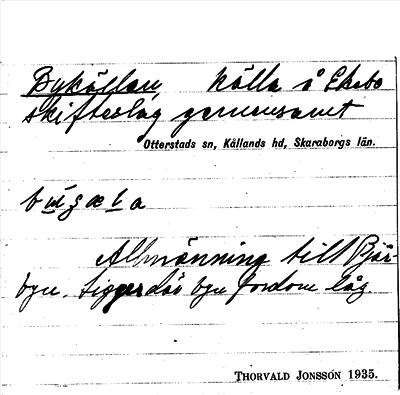 Bykällan, källa å Ekebo
skifteslag gemensamt
Otterstads sn, Kållands hd, Skaraborgs län.
Allmänning till Bjär-
byn. Ligger där byn fordom låg.
THORVALD JONSSON 1935.